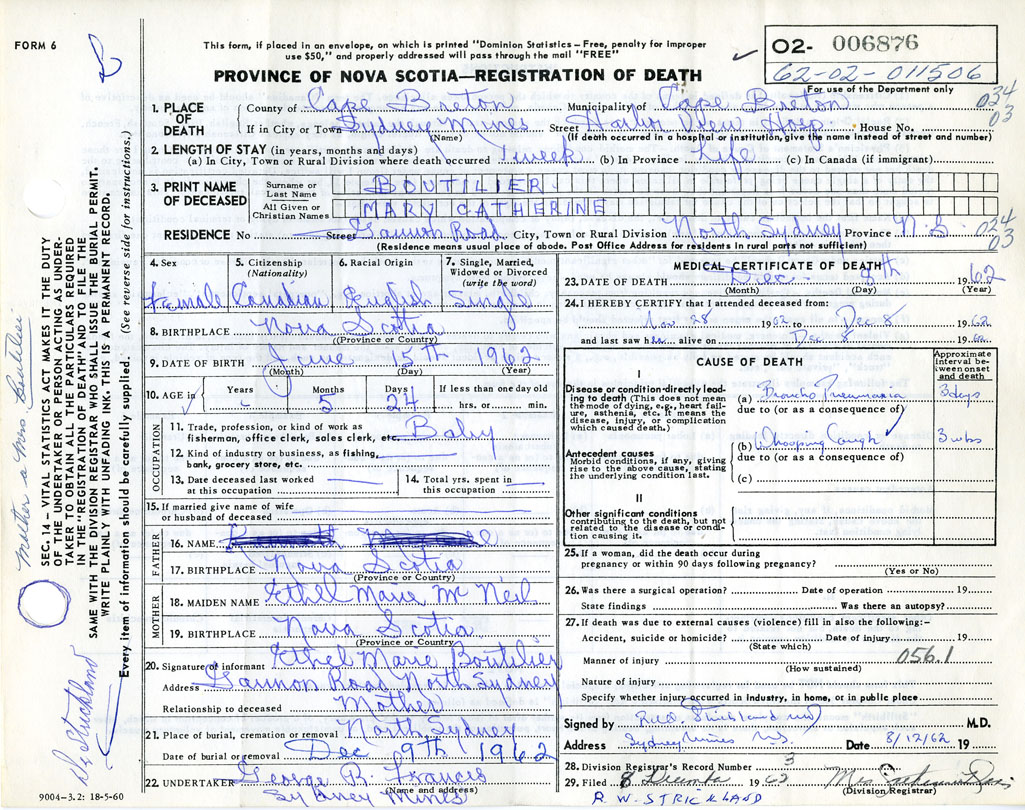 FORM 6
This form, if placed in an envelope, on which is printed "Dominion Statistics—Free, penalty for improper
use $50," and properly addressed will pass through the mail "FREE"
02- 006876
62-02-011506
For use of the Department only
PROVINCE OF NOVA SCOTIA—REGISTRATION OF DEATH
034
03
1. PLACE OF DEATH
County of Cape Breton Municipality of Cape Breton
If in City or Town Sydney Mines Street Harbor View Hosp House No.
(Name) (If death occurred in a hospital or institution, give the name instead of street and number)
2. LENGTH OF STAY (in years, months and days)
(a) In City, Town or Rural Division where death occurred 1 week (b) In Province Life (c) In Canada (if immigrant)
3. PRINT NAME OF DECEASED
Surname or Last Name BOUTILIER
All Given or Christian Names MARY CATHERINE
RESIDENCE No Street Gannon Road City, Town or Rural Division North Sydney Province N.S.
024
03
(Residence means usual place of abode. Post Office Address for residents in rural parts not sufficient)
4. Sex Female
5. Citizenship (Nationality) Canadian
6. Racial Origin English
7. Single, Married, Widowed or Divorced (write the word) Single
8. BIRTHPLACE Nova Scotia
(Province or Country)
9. DATE OF BIRTH June 15th 1962
(Month) (Day) (Year)
10. AGE in Years Months 5 Days 24 If less than one day old hrs. or min.
OCCUPATION
11. Trade, profession, or kind of work as fisherman, office clerk, sales clerk, etc. Baby
12. Kind of industry or business, as fishing, bank, grocery store, etc.
13. Date deceased last worked at this occupation
14. Total yrs. spent in this occupation
15. If married give name of wife or husband of deceased
FATHER
16. NAME
17. BIRTHPLACE Nova Scotia
(Province or Country)
MOTHER
18. MAIDEN NAME Ethel Marie McNeil
19. BIRTHPLACE Nova Scotia
(Province or Country)
20. Signature of informant Ethel Marie Boutilier
Address Gannon Road North Sydney
Relationship to deceased Mother
21. Place of burial, cremation or removal North Sydney
Date of burial or removal Dec 9th 1962
22. UNDERTAKER George B. Francis
(Name and address)
Sydney Mines
9004-3.2: 18-5-60
MEDICAL CERTIFICATE OF DEATH
23. DATE OF DEATH Dec. 8th 1962
(Month) (Day) (Year)
24. I HEREBY CERTIFY that I attended deceased from:
Nov 28 1962 to Dec 8 1962
and last saw her alive on Dec 8 1962
CAUSE OF DEATH
Approximate Interval between onset and death
I
Disease or condition directly leading to death (This does not mean the mode of dying, e.g., heart failure, asthenia, etc. It means the disease, injury, or complication which caused death.)
(a) Broncho Pneumonia 3 days
due to (or as a consequence of)
Antecedent causes
Morbid conditions, if any, giving rise to the above cause, stating the underlying condition last.
(b) Whooping Cough 3 wks
due to (or as a consequence of)
(c)
II
Other significant conditions
contributing to the death, but not related to the disease or condition causing it.
25. If a woman, did the death occur during
pregnancy or within 90 days following pregnancy?
(Yes or No)
26. Was there a surgical operation? Date of operation 19
State findings Was there an autopsy?
27. If death was due to external causes (violence) fill in also the following:-
Accident, suicide or homicide? Date of injury 19
(State which)
Manner of injury 056.1
(How sustained)
Nature of injury
Specify whether injury occurred in Industry, in home, or in public place
Signed by Strickland M.D.
Address Sydney Mines N.S. Date 8/12/62 19
28. Division Registrar's Record Number 3
29. Filed 8 December 1962 Mrs
(Division Registrar)
R.W. STRICKLAND
Mother a Mrs Boutilier
SEC. 14 — VITAL STATISTICS ACT MAKES IT THE DUTY
OF THE UNDERTAKER OR PERSON ACTING AS UNDERTAKER TO OBTAIN ALL THE PARTICULARS REQUIRED
IN THE "REGISTRATION OF DEATH" AND TO FILE THE
SAME WITH THE DIVISION REGISTRAR WHO SHALL ISSUE THE BURIAL PERMIT.
WRITE PLAINLY WITH UNFADING INK. THIS IS A PERMANENT RECORD.
Every item of information should be carefully supplied. (See reverse side for instructions.)
Dr Strickland